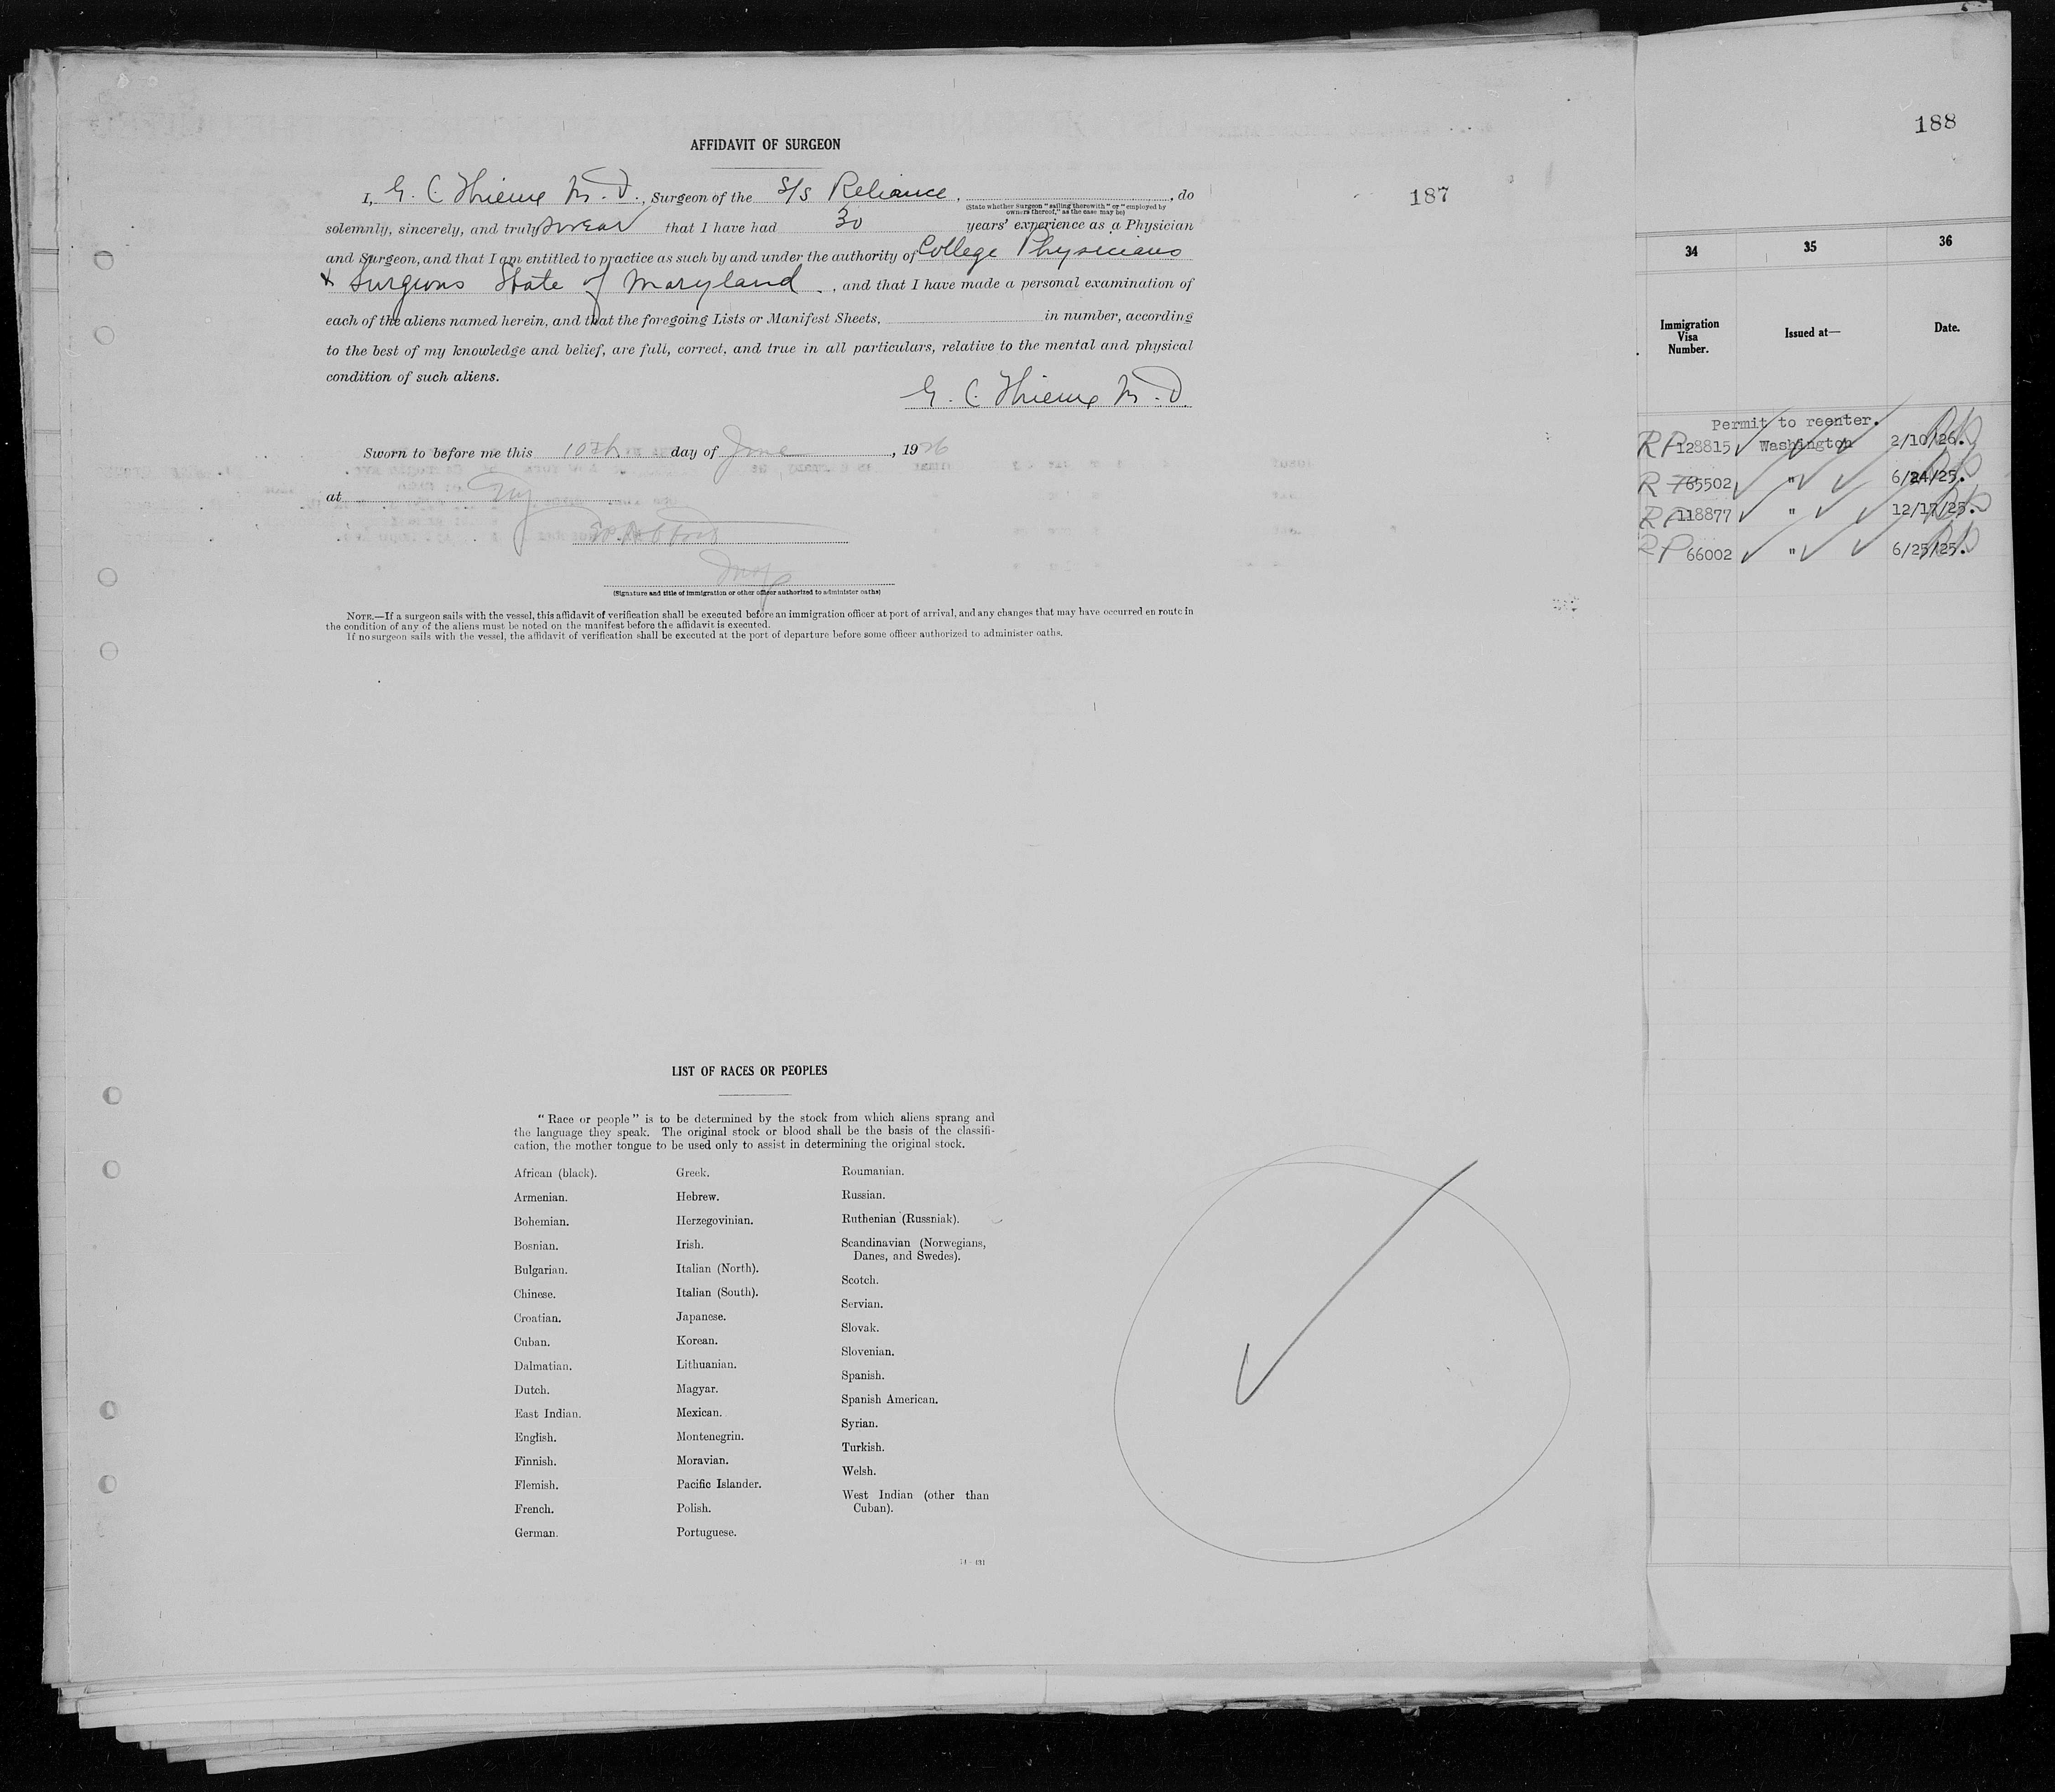 188
187
AFFIDAVIT OF SURGEON
I, G. C. Thieme M.D., Surgeon of the S/S Reliance, , do
(State whether Surgeon "sailing therewith" or "employed by
owners thereof," as the case may be)
solemnly, sincerely, and truly swear that I have had 30 years' experience as a Physician
and Surgeon, and that I am entitled to practice as such by and under the authority of College Physicians
& Surgeons State of Maryland, and that I have made a personal examination of
each of the aliens named herein, and that the foregoing Lists or Manifest Sheets, in number, according
to the best of my knowledge and belief, are full, correct, and true in all particulars, relative to the mental and physical
condition of such aliens.
G. C. Thieme M.D.
Sworn to before me this 10th day of June, 1926
at NY
(Signature and title of immigration or other officer authorized to administer oaths)
NOTE.—If a surgeon sails with the vessel, this affidavit of verification shall be executed before an immigration officer at port of arrival, and any changes that may have occurred en route in
the condition of any of the aliens must be noted on the manifest before the affidavit is executed.
If no surgeon sails with the vessel, the affidavit of verification shall be executed at the port of departure before some officer authorized to administer oaths.
LIST OF RACES OR PEOPLES
"Race or people" is to be determined by the stock from which aliens sprang and
the language they speak. The original stock or blood shall be the basis of the classifi-
cation, the mother tongue to be used only to assist in determining the original stock.
African (black).
Armenian.
Bohemian.
Bosnian.
Bulgarian.
Chinese.
Croatian.
Cuban.
Dalmatian.
Dutch.
East Indian.
English.
Finnish.
Flemish.
French.
German.
Greek.
Hebrew.
Herzegovinian.
Irish.
Italian (North).
Italian (South).
Japanese.
Korean.
Lithuanian.
Magyar.
Mexican.
Montenegrin.
Moravian.
Pacific Islander.
Polish.
Portuguese.
Roumanian.
Russian.
Ruthenian (Russniak).
Scandinavian (Norwegians,
Danes, and Swedes).
Scotch.
Servian.
Slovak.
Slovenian.
Spanish.
Spanish American.
Syrian.
Turkish.
Welsh.
West Indian (other than
Cuban).
34 35 36
Immigration
Visa
Number.
Issued at—
Date.
Permit to reenter.
RP 128815 ✓ Washington 2/10/26.
65502 ✓ " 6/24/25.
RP 118877 ✓ " 12/17/25.
RP 66002 ✓ " 6/25/25.